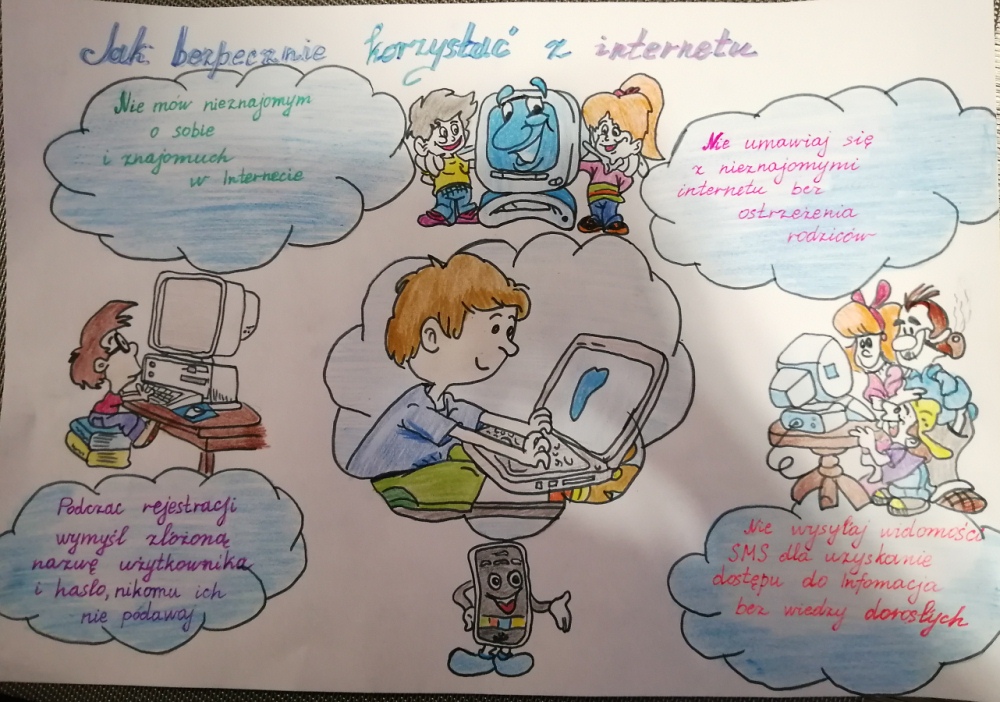 Jak bezpecznie korzystać z internetu
Nie mów nieznajomym
o sobie
i znajomuch
w Internecie
Nie umawiaj się
z nieznajomymi
internetu bez
ostrzeżenia
rodziców
Podczac rejestracji
wymyśl złożoną
nazwę użytkownika
i hasło, nikomu ich
nie pódawaj
Nie wysyłaj widomości
SMS dla uzyskanie
dostępu do Infomacja
bez wiedzy dorosłych